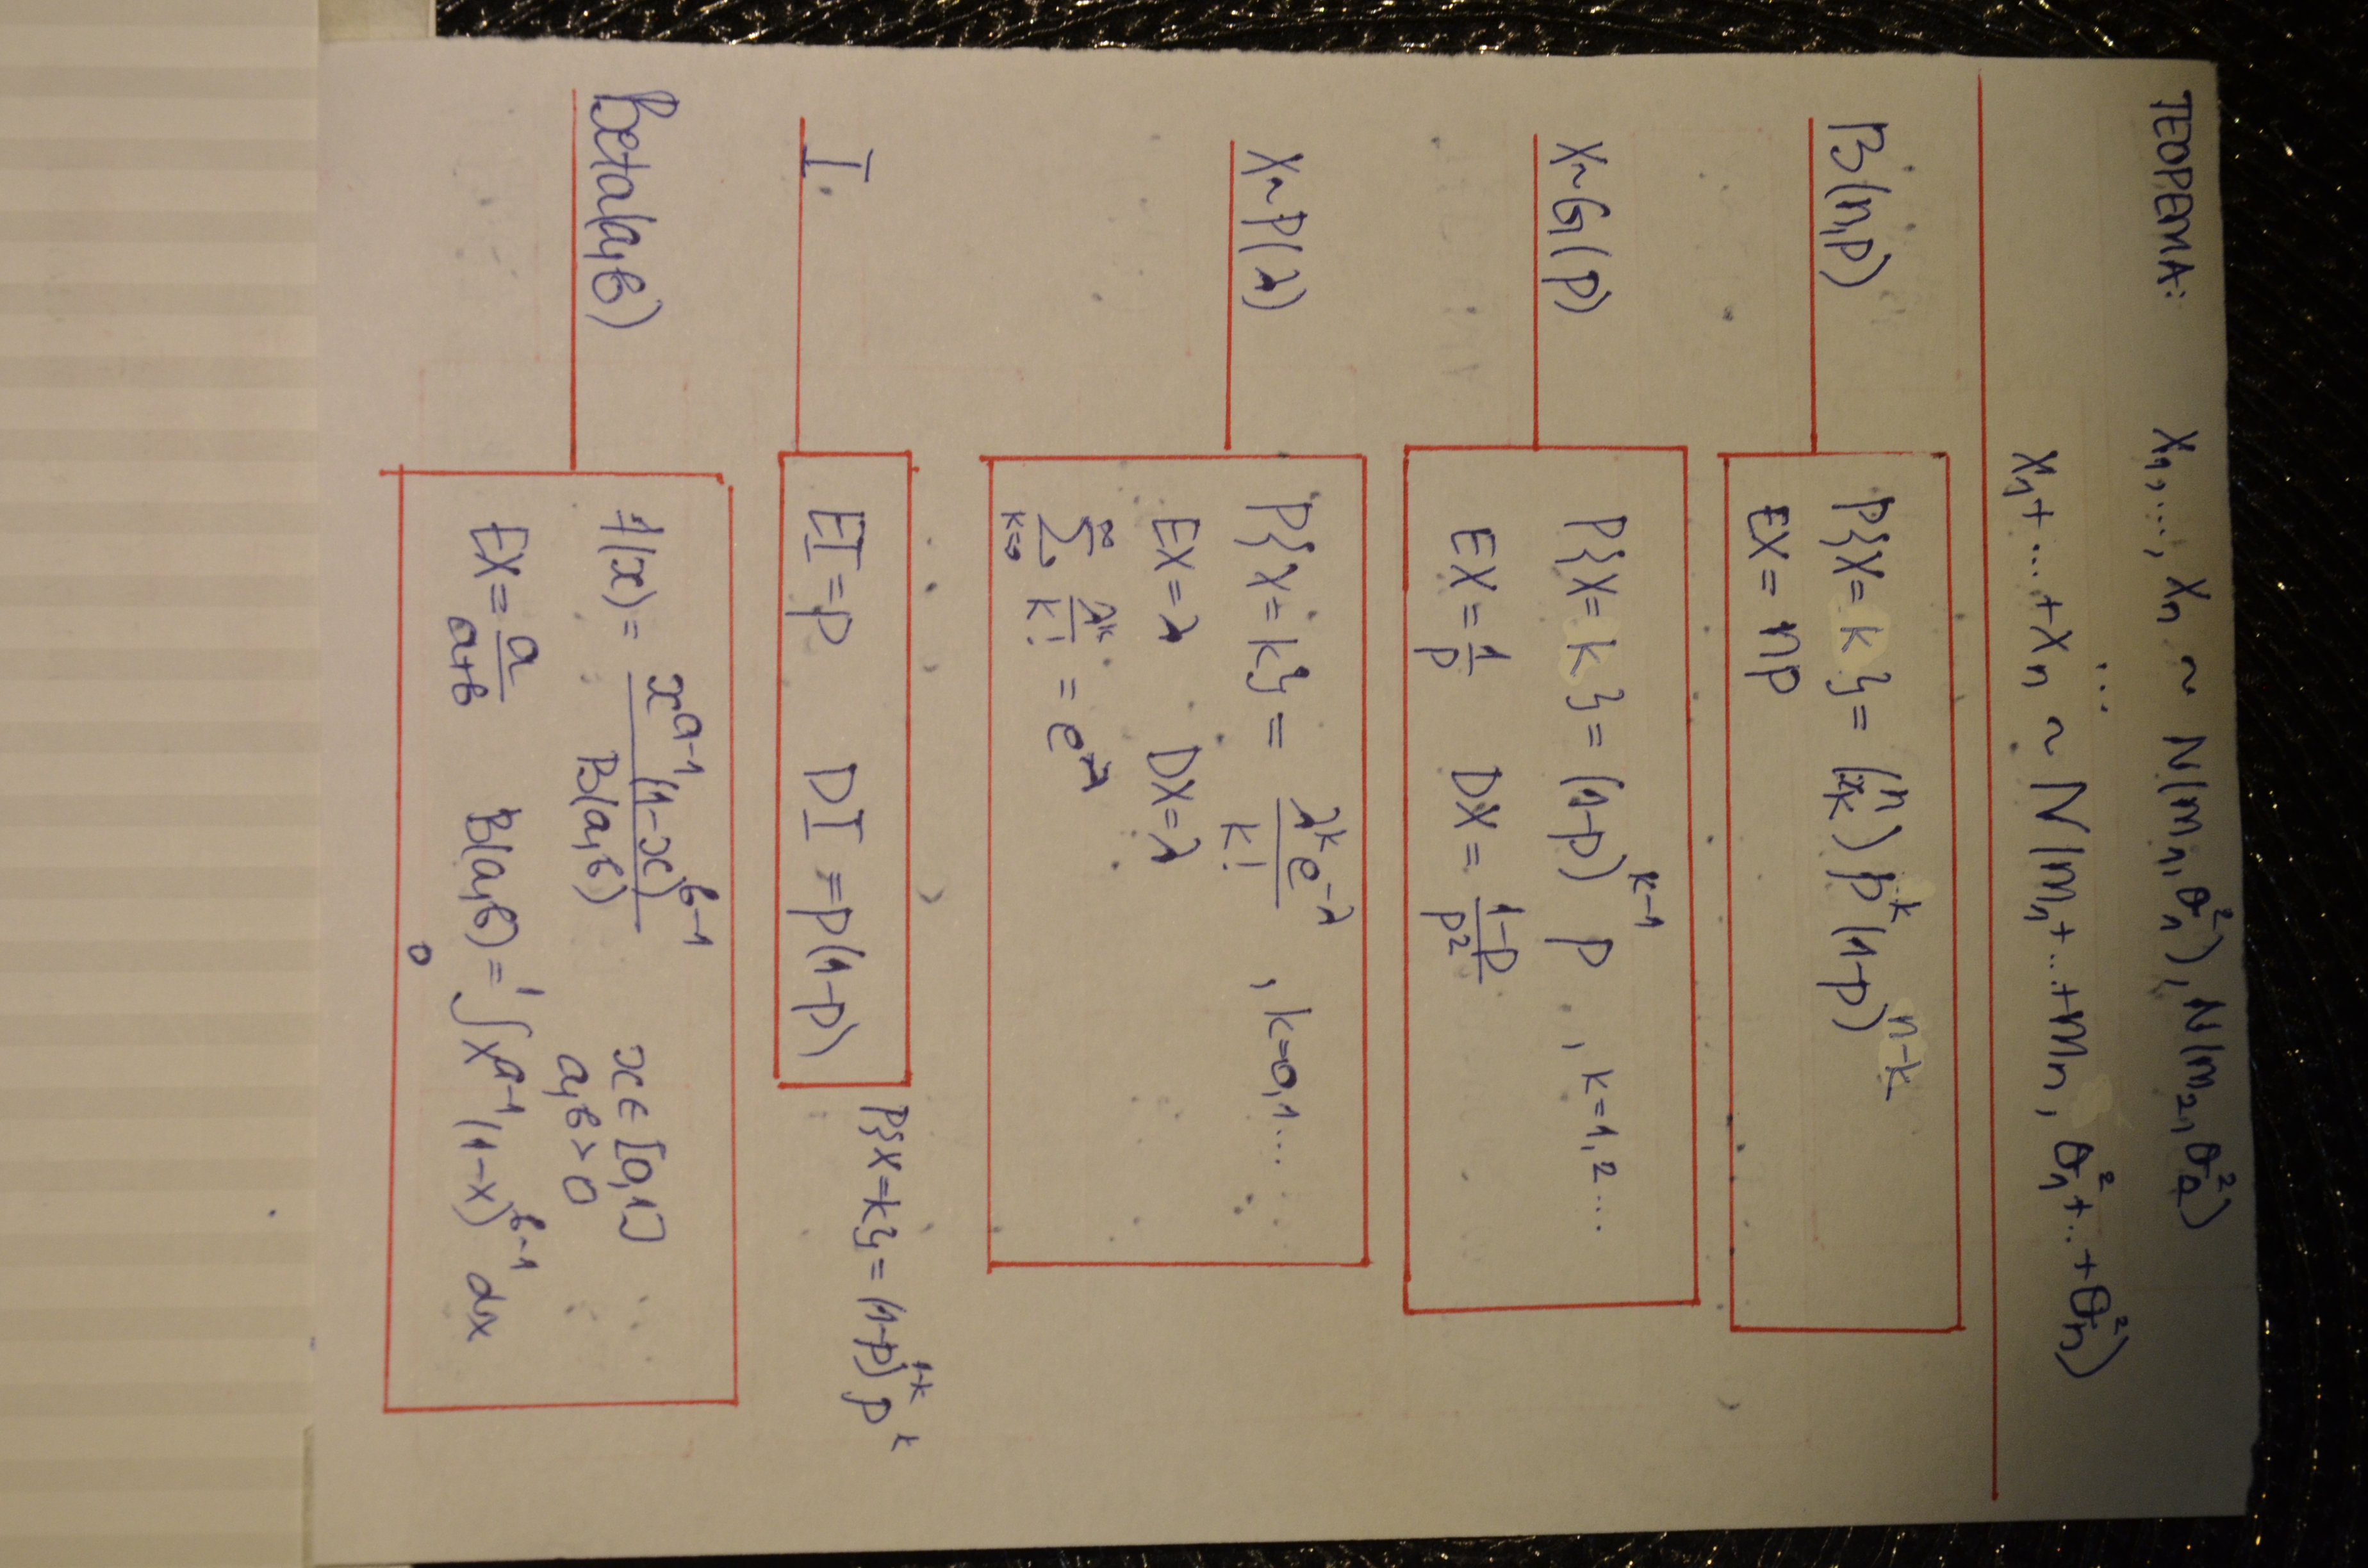 ТЕОРЕМА: X₁, ..., Xₙ ~ N(m₁, σ₁²), N(m₂, σ₂²)
...
X₁ + ... + Xₙ ~ N(m₁ + ... + mₙ, σ₁² + ... + σₙ²)
B(n,p)
P{X = k} = (n k) p^k (1-p)^(n-k)
EX = np
X~G(p)
P{X = k} = (1-p)^(k-1) p , k=1,2...
EX = 1/p DX = (1-p)/p²
X~P(λ)
P{X = k} = λ^k e^(-λ) / k! , k=0,1...
EX = λ DX = λ
∑_(k=0)^∞ λ^k / k! = e^λ
I.
EI = p DI = p(1-p)
P{X=k} = (1-p)^(1-k) p^k
Beta(a,b)
f(x) = x^(a-1) (1-x)^(b-1) / B(a,b) x ∈ [0,1]
a,b > 0
EX = a/(a+b) B(a,b) = ∫₀¹ x^(a-1) (1-x)^(b-1) dx